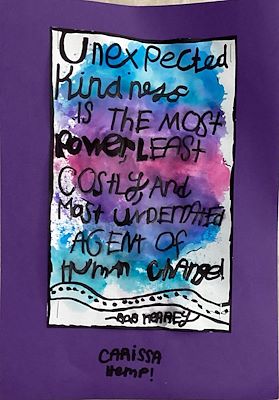 Unexpected
Kindness
IS THE MOST
POWER,LEAST
COSTLY, And
MOST UNDERRATED
AGENT OF
Human CHANGE!
-BOB KERREY
CARISSA
Hemp!